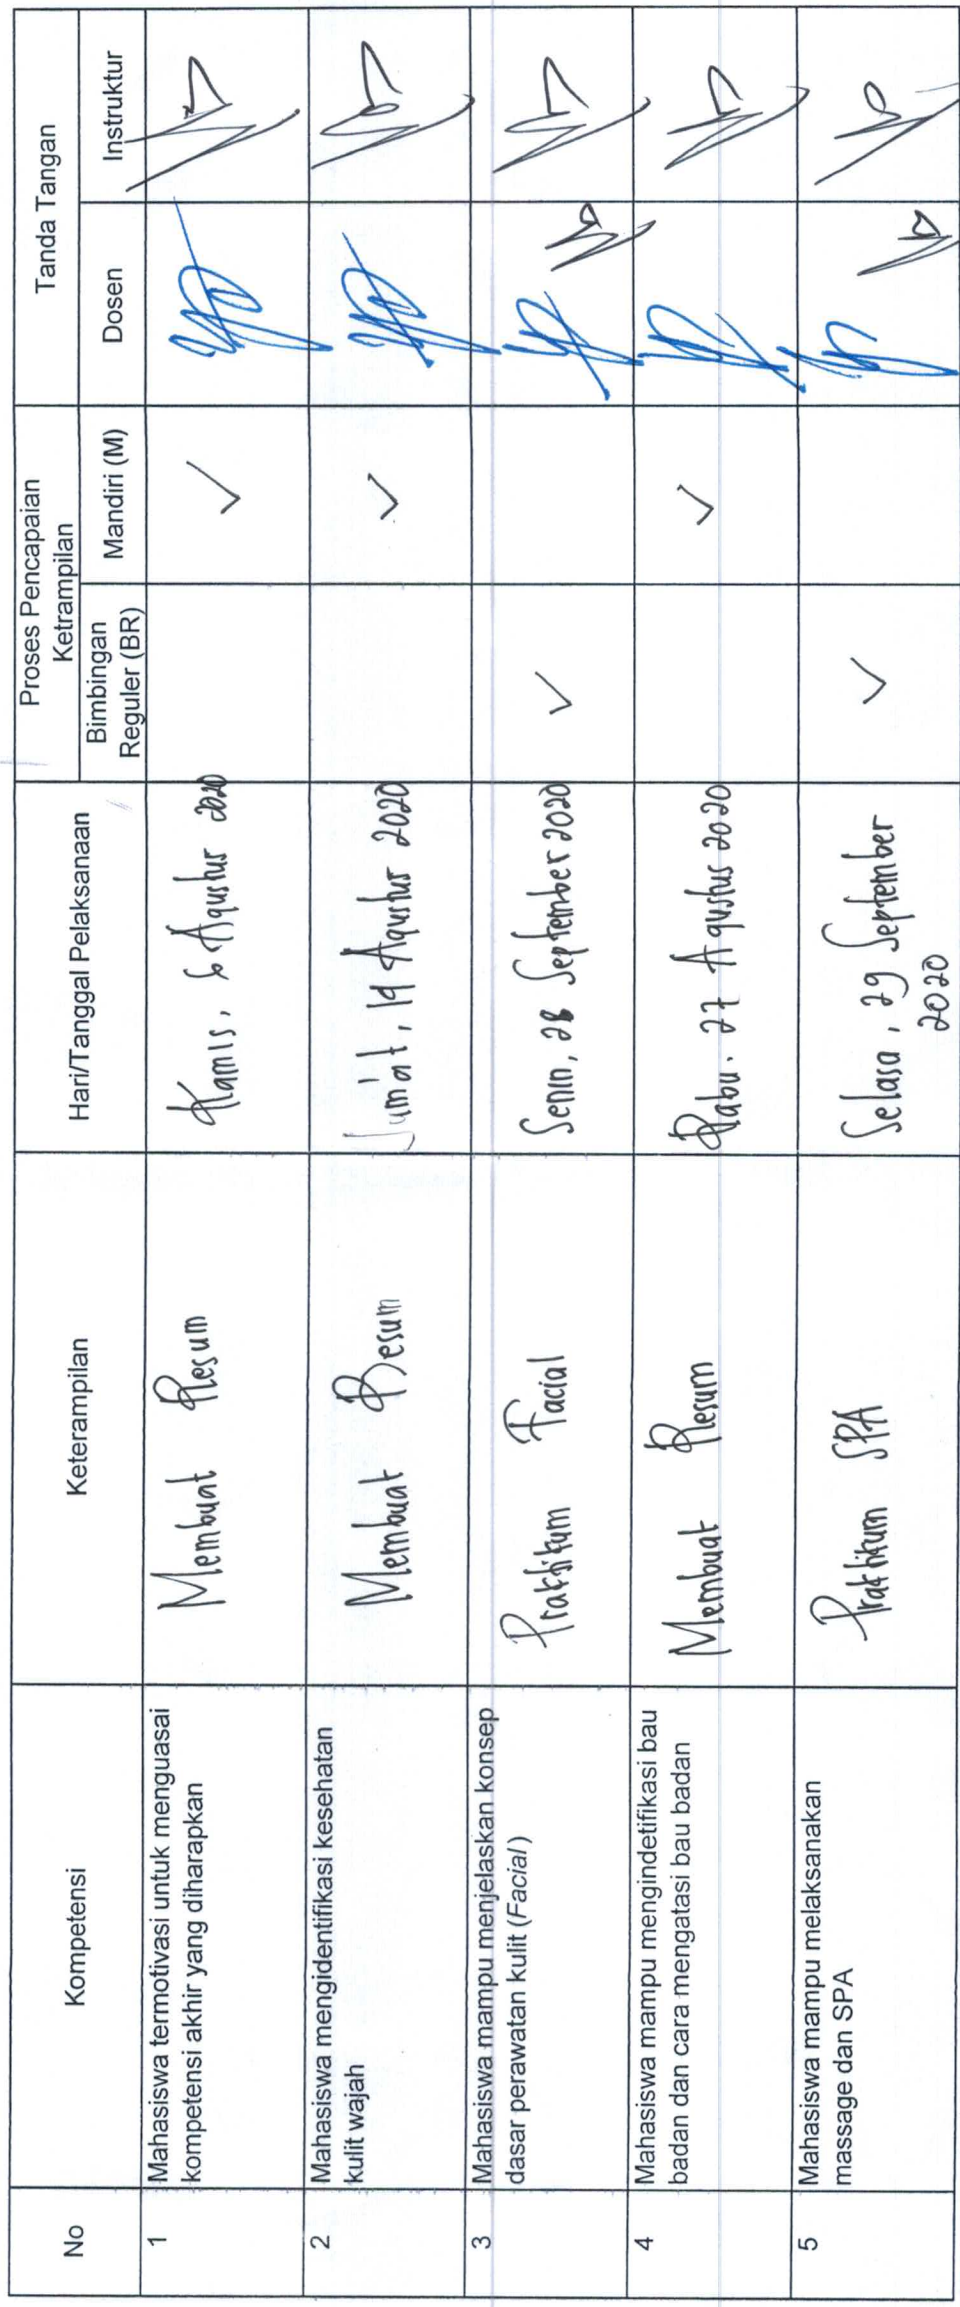 No
Kompetensi
Keterampilan
Hari/Tanggal Pelaksanaan
Proses Pencapaian
Ketrampilan
Tanda Tangan
Bimbingan
Reguler (BR)
Mandiri (M)
Dosen
Instruktur
1
Mahasiswa termotivasi untuk menguasai
kompetensi akhir yang diharapkan
Membuat Resum
Kamis, 6 Agustus 2020
2
Mahasiswa mengidentifikasi kesehatan
kulit wajah
Membuat Resum
Jum'at, 14 Agustus 2020
3
Mahasiswa mampu menjelaskan konsep
dasar perawatan kulit (Facial)
Praktikum Facial
Senin, 28 September 2020
4
Mahasiswa mampu mengindetifikasi bau
badan dan cara mengatasi bau badan
Membuat Resum
Rabu. 27 Agustus 2020
5
Mahasiswa mampu melaksanakan
massage dan SPA
Praktikum SPA
Selasa, 29 September
2020